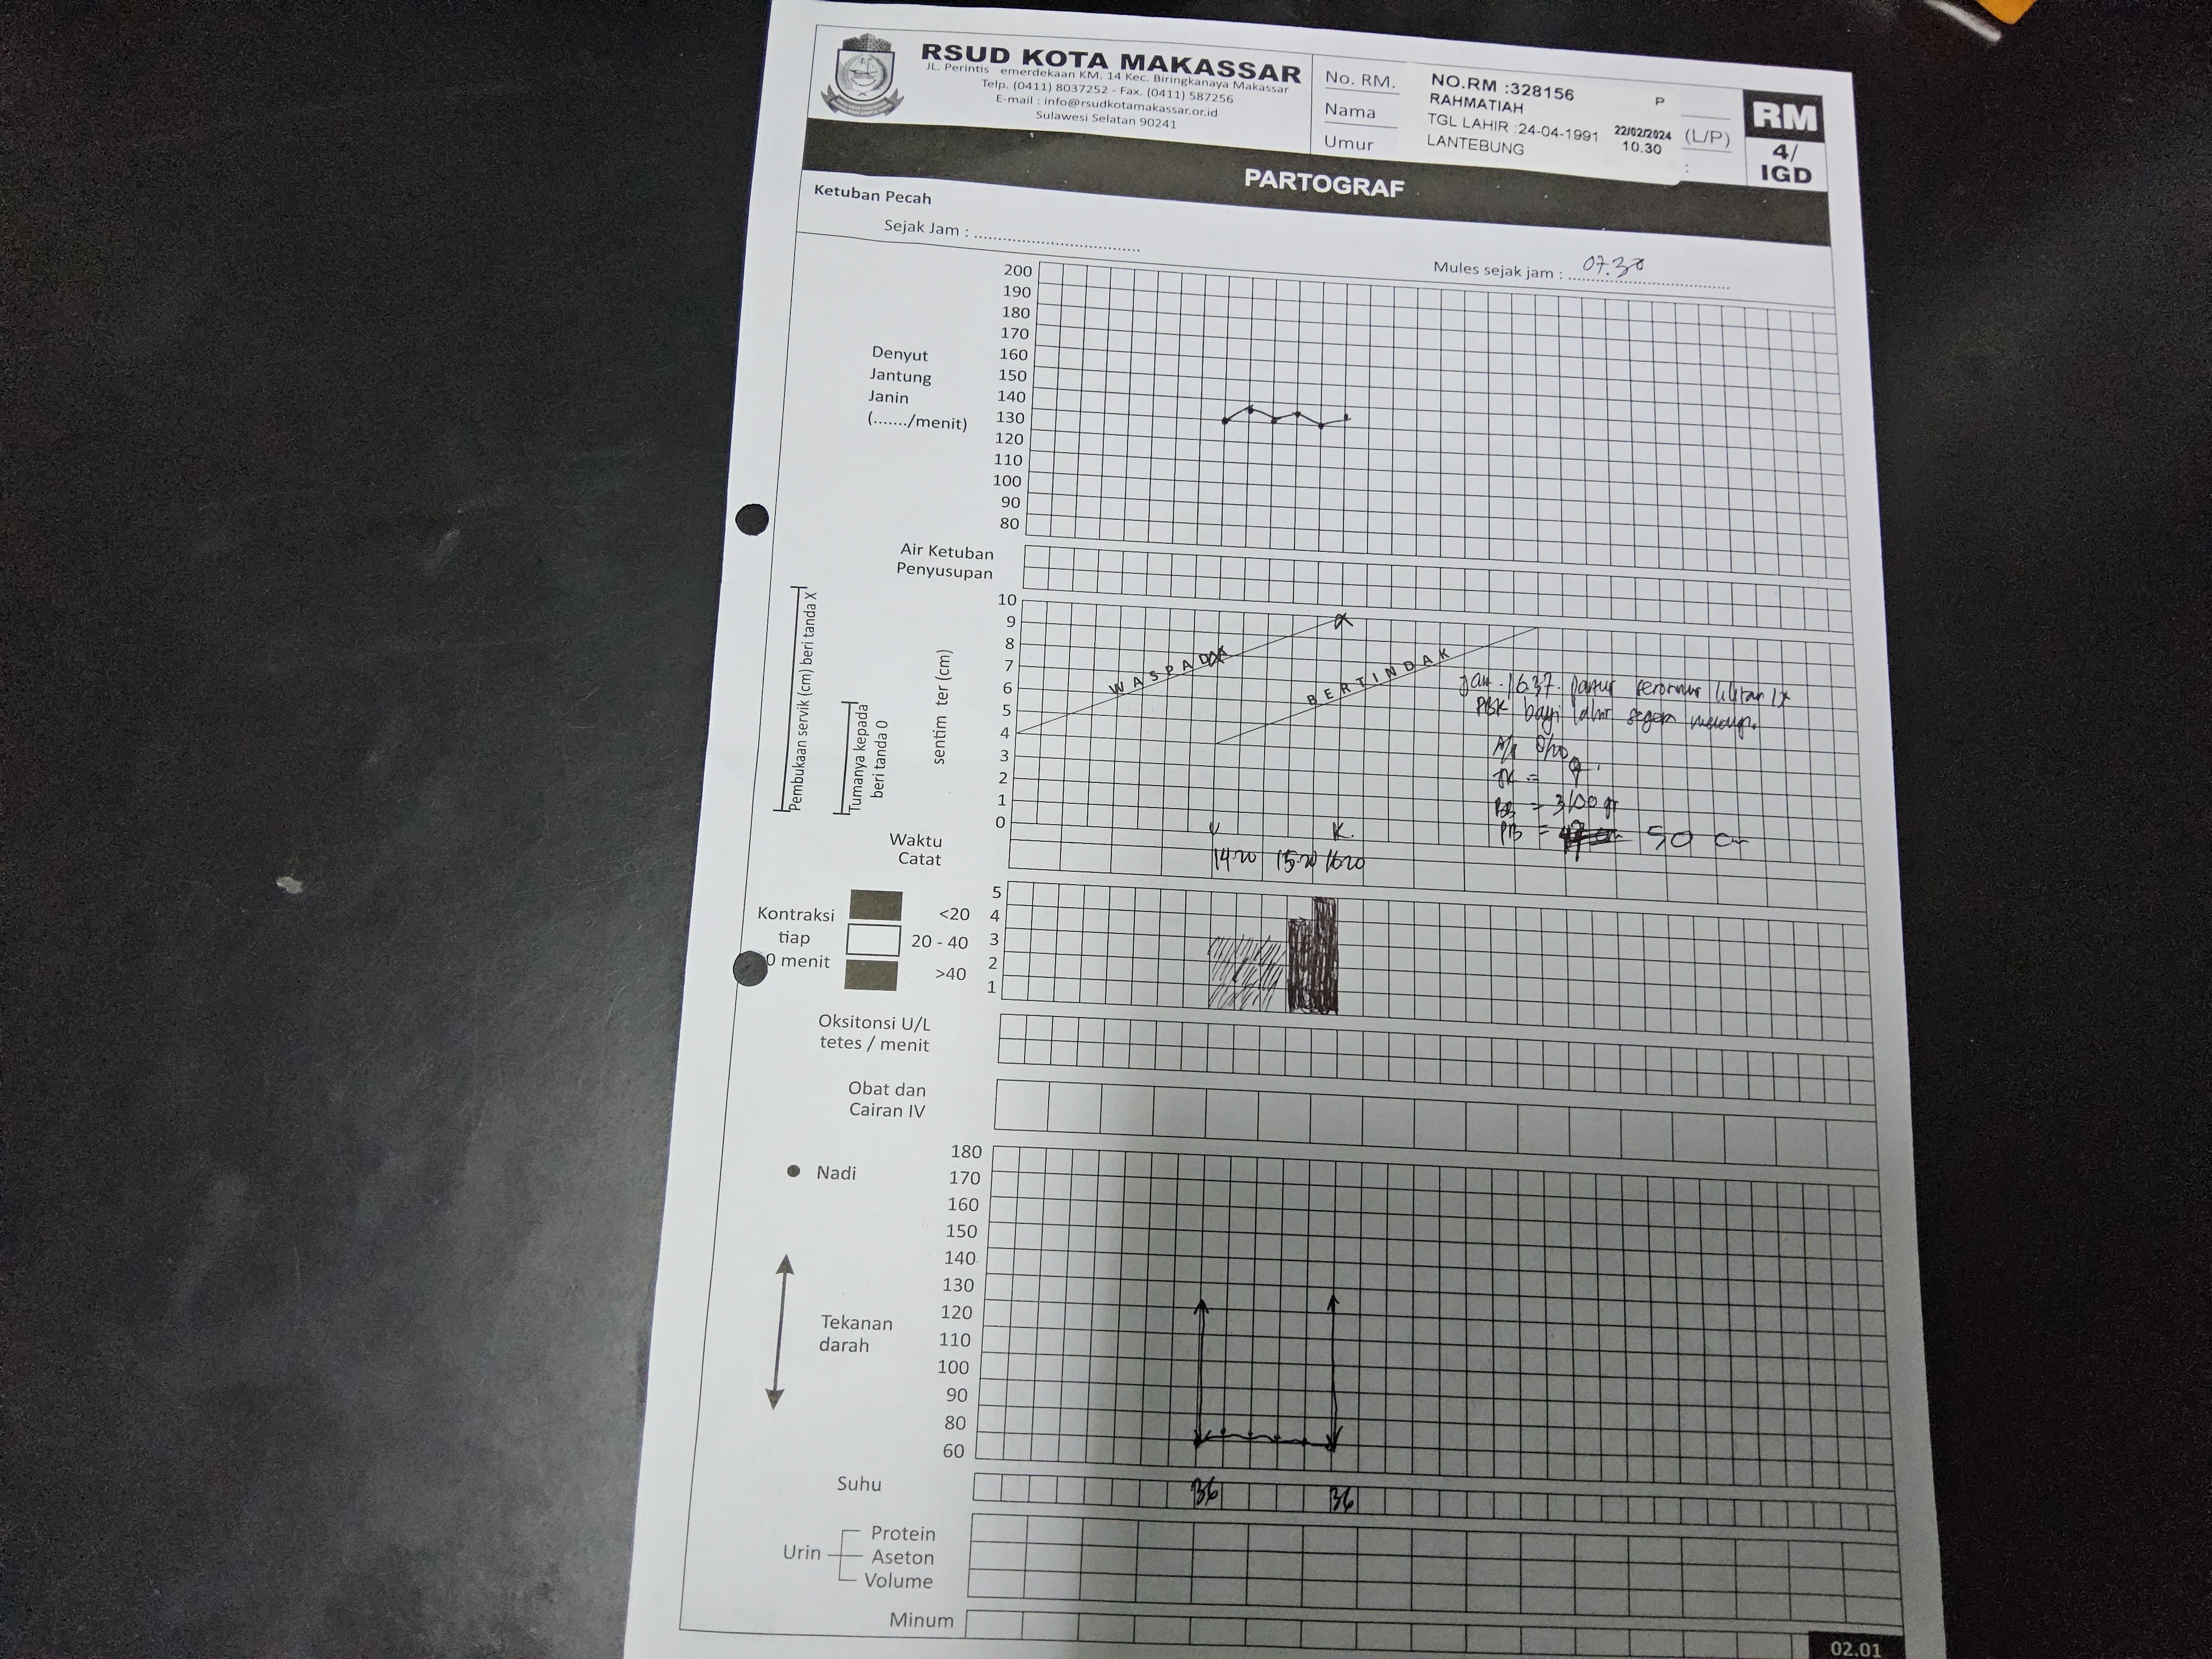 RSUD KOTA MAKASSAR
JL. Perintis emerdekaan KM. 14 Kec. Biringkanaya Makassar
Telp. (0411) 8037252 - Fax. (0411) 587256
E-mail : info@rsudkotamakassar.or.id
Sulawesi Selatan 90241
No. RM.
Nama
Umur
NO.RM :328156
P
RAHMATIAH
TGL LAHIR :24-04-1991
22/02/2024
(L/P)
LANTEBUNG
10.30
:
RM
4/
IGD
PARTOGRAF
Ketuban Pecah
Sejak Jam :
Mules sejak jam : 07.30
200
190
180
170
160
150
140
130
120
110
100
90
80
Denyut
Jantung
Janin
(......./menit)
Air Ketuban
Penyusupan
Pembukaan servik (cm) beri tanda X
Tumanya kepada
beri tanda 0
sentim ter (cm)
10
9
8
7
6
5
4
3
2
1
0
WASPADA
BERTINDAK
1637
bayi segera
BB = 3100 gr
PB = 50 cm
Waktu
Catat
14 20 15 20 16 20
Kontraksi
tiap
0 menit
<20
20 - 40
>40
5
4
3
2
1
Oksitonsi U/L
tetes / menit
Obat dan
Cairan IV
Nadi
Tekanan
darah
180
170
160
150
140
130
120
110
100
90
80
60
Suhu
36 36
Urin
Protein
Aseton
Volume
Minum
02.01